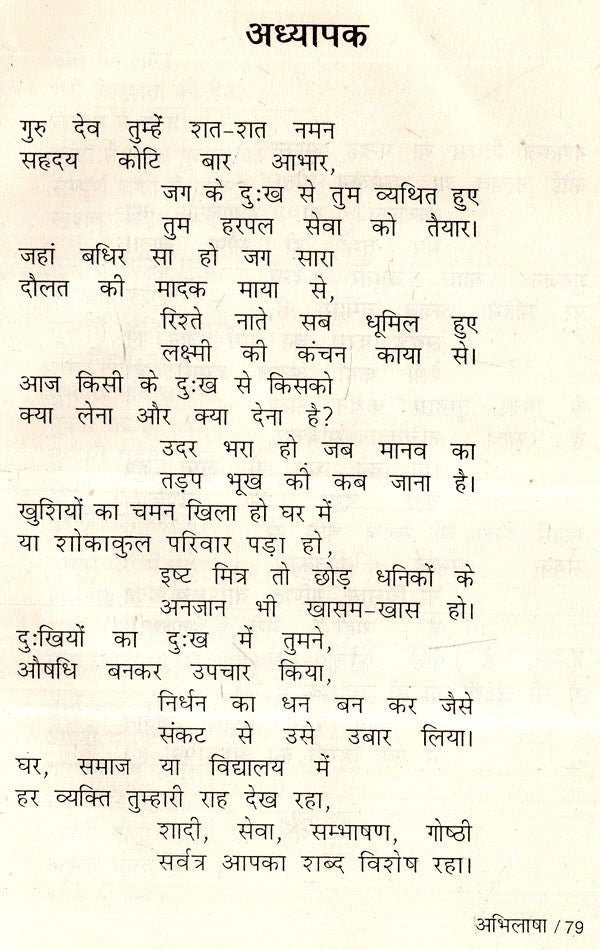 अध्यापक
गुरु देव तुम्हें शत-शत नमन
सहृदय कोटि बार आभार,
जग के दुःख से तुम व्यथित हुए
तुम हरपल सेवा को तैयार।
जहां बधिर सा हो जग सारा
दौलत की मादक माया से,
रिश्ते नाते सब धूमिल हुए
लक्ष्मी की कंचन काया से।
आज किसी के दुःख से किसको
क्या लेना और क्या देना है?
उदर भरा हो जब मानव का
तड़प भूख की कब जाना है।
खुशियों का चमन खिला हो घर में
या शोकाकुल परिवार पड़ा हो,
इष्ट मित्र तो छोड़ धनिकों के
अनजान भी खासम-खास हो।
दुःखियों का दुःख में तुमने,
औषधि बनकर उपचार किया,
निर्धन का धन बन कर जैसे
संकट से उसे उबार लिया।
घर, समाज या विद्यालय में
हर व्यक्ति तुम्हारी राह देख रहा,
शादी, सेवा, सम्भाषण, गोष्ठी
सर्वत्र आपका शब्द विशेष रहा।
अभिलाषा / 79